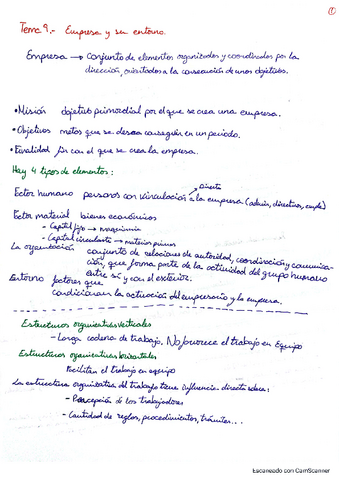 1
Tema 9.- Empresa y su entorno.
Empresa → conjunto de elementos organizados y coordinados por la
dirección, orientados a la consecución de unos objetivos.
• Misión objetivo primordial por el que se crea una empresa.
• Objetivos metas que se desea conseguir en un periodo.
• Finalidad fin con el que se crea la empresa.
Hay 4 tipos de elementos:
Directa
Factor humano personas con vinculación a la empresa (admin, directivos, emple)
Factor material bienes económicos
- Capital fijo → maquinaria
- Capital circulante → materias primas
La organización conjunto de relaciones de autoridad, coordinación y comunica-
ción, que forma parte de la actividad del grupo humano
entre sí y con el exterior.
Entorno factores que
condicionan la actuación del empresario y la empresa.
Estructuras organizativas verticales
- Larga cadena de trabajo, No favorece el trabajo en equipo
Estructuras organizativas horizontales
Facilitan el trabajo en equipo
La estructura organizativa del trabajo tiene influencia directa sobre:
- Percepción de los trabajadores
- Cantidad de reglas, procedimientos, trámites...
Escaneado con CamScanner